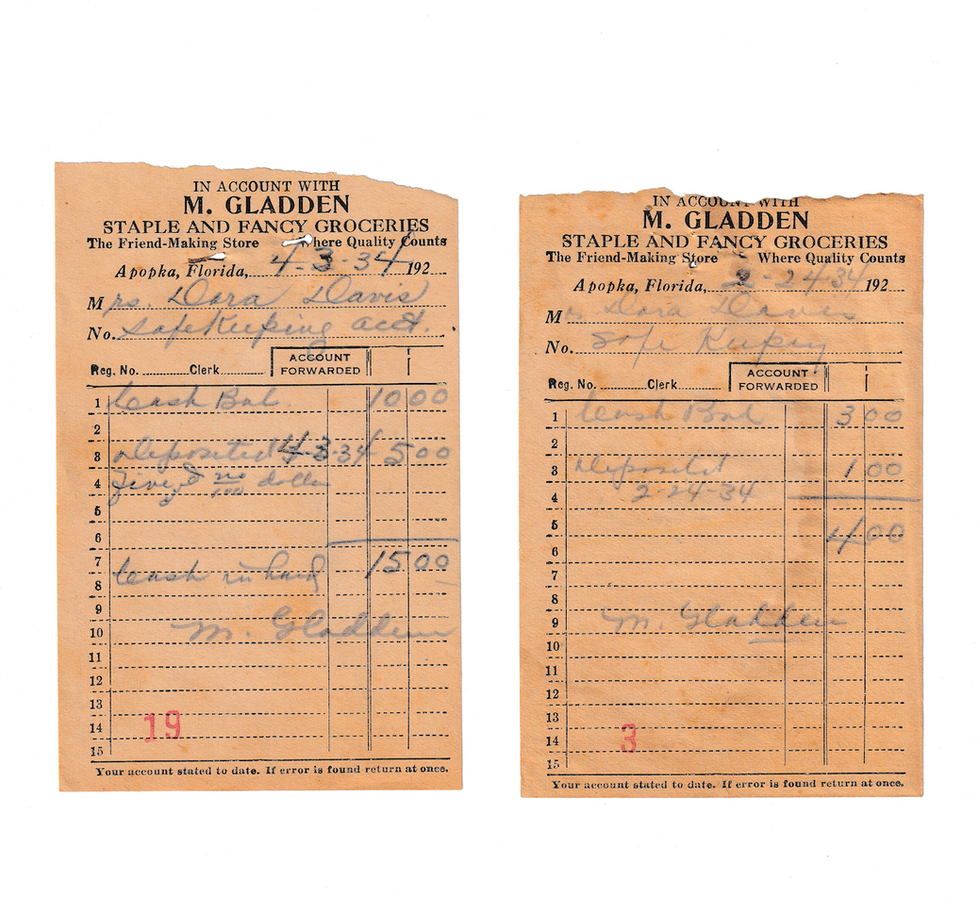 IN ACCOUNT WITH
M. GLADDEN
STAPLE AND FANCY GROCERIES
The Friend-Making Store here Quality Counts
Apopka, Florida, 4-3-34 192
Mrs. Dora Davis
No. Safe Keeping acct.
ACCOUNT FORWARDED
Reg. No. Clerk
1 Cash Bal. 10 00
2
3 Deposited 4-3-34 5 00
4 five & no/100 dollar
5
6
7 Cash in hand 15 00
8
9
10 M. Gladden
11
12
13
14 19
15
Your account stated to date. If error is found return at once.
IN ACCOUNT WITH
M. GLADDEN
STAPLE AND FANCY GROCERIES
The Friend-Making Store Where Quality Counts
Apopka, Florida, 2-24-34 192
Mrs Dora Davis
No. Safe Keeping
ACCOUNT FORWARDED
Reg. No. Clerk
1 Cash Bal 3 00
2
3 Deposited 1 00
4 2-24-34
5 4 00
6
7
8
9 M. Gladden
10
11
12
13
14 3
15
Your account stated to date. If error is found return at once.